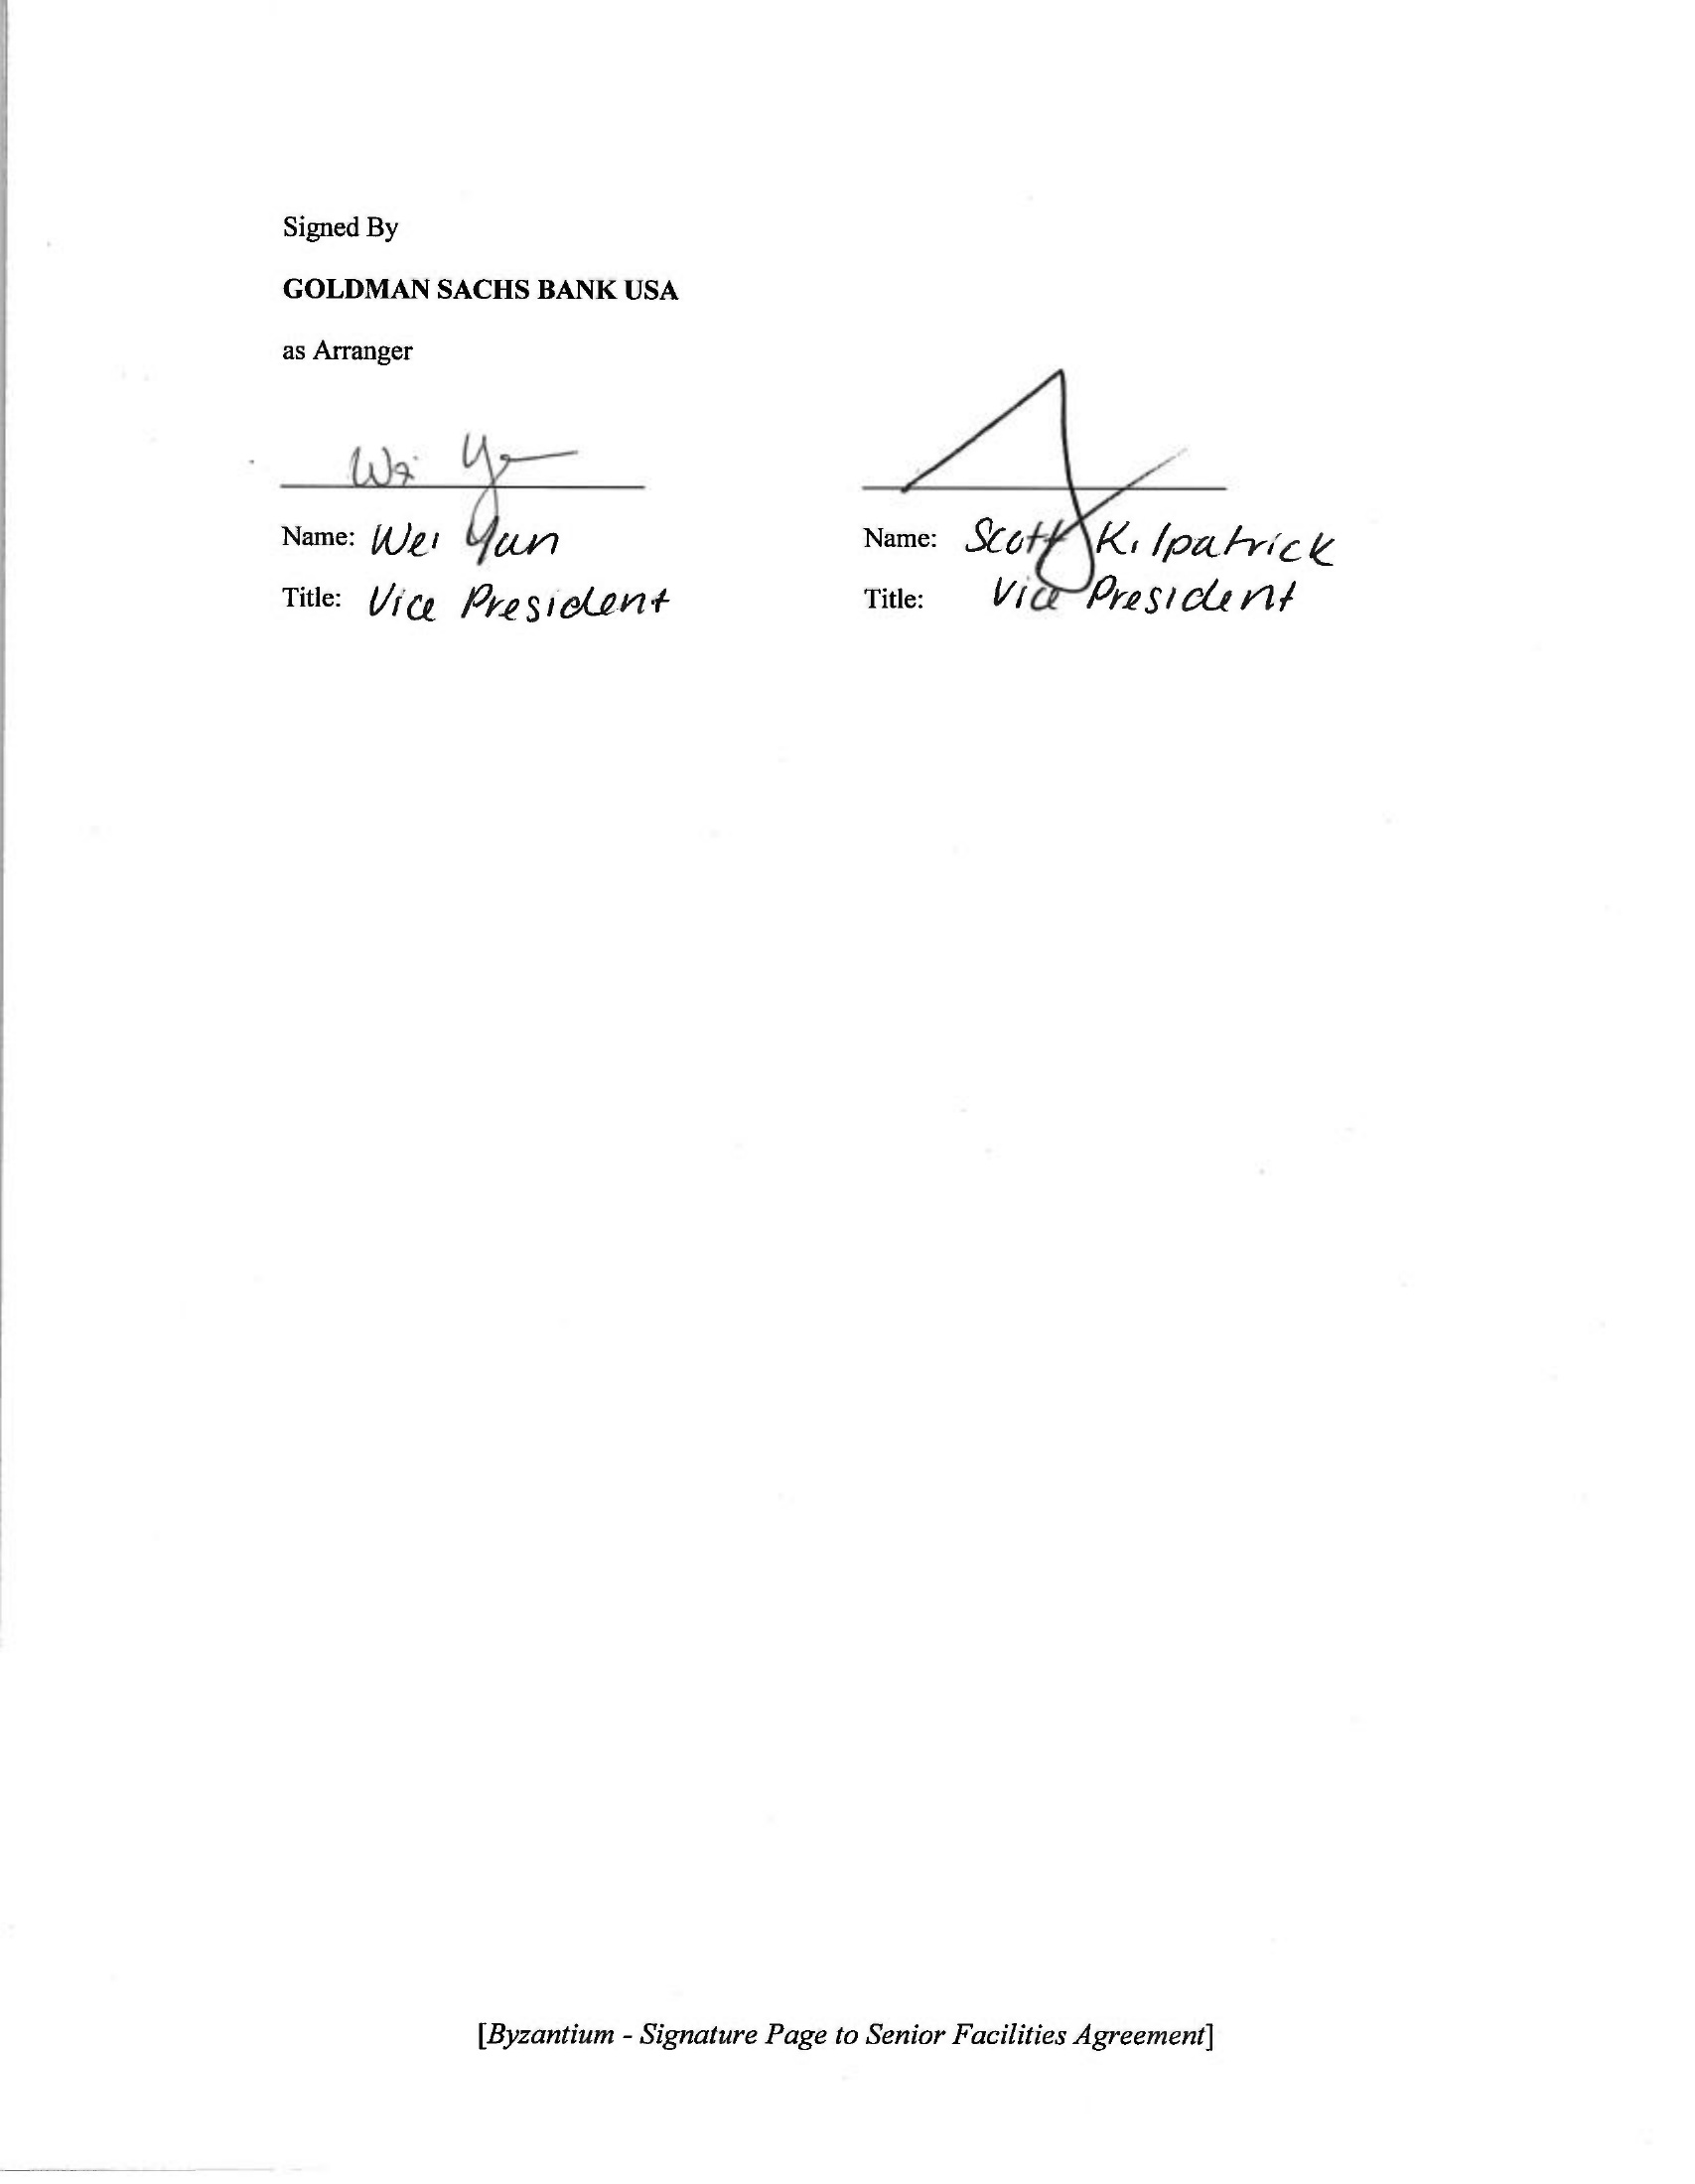 Signed By
GOLDMAN SACHS BANK USA
as Arranger
Name: Wei Yun
Title: Vice President
Name: Scott Kilpatrick
Title: Vice President
[Byzantium - Signature Page to Senior Facilities Agreement]